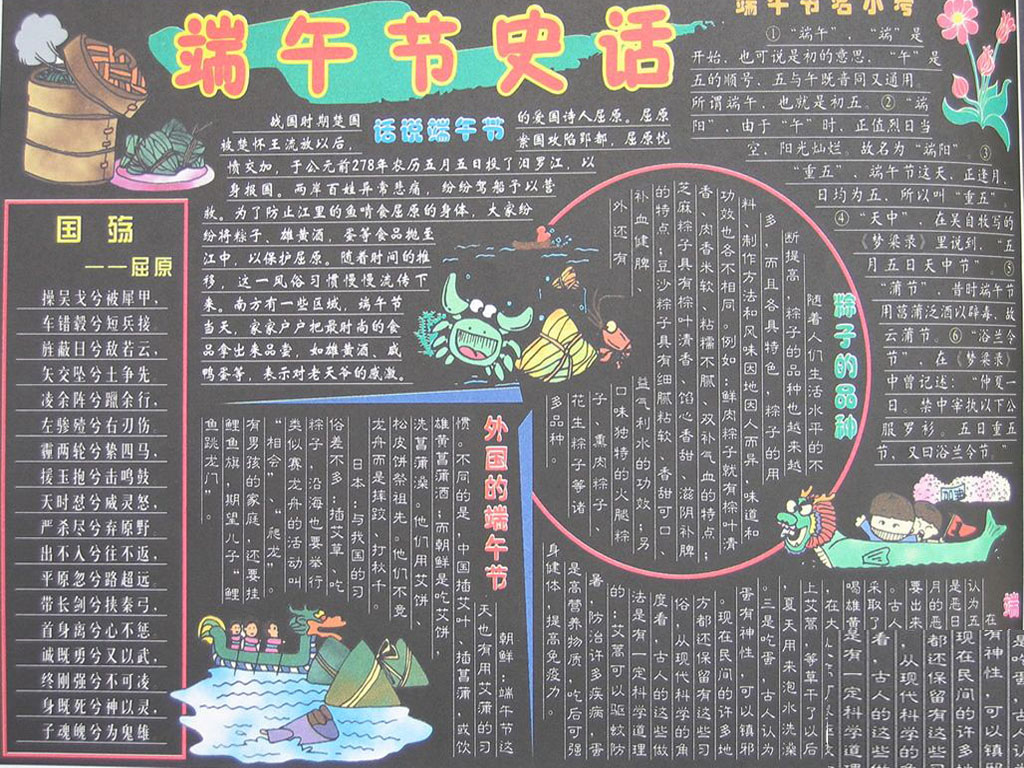 端午节史话
国殇
——屈原
操吴戈兮被犀甲，
车错毂兮短兵接。
旌蔽日兮敌若云，
矢交坠兮士争先。
凌余阵兮躐余行，
左骖殪兮右刃伤。
霾两轮兮絷四马，
援玉抱兮击鸣鼓
天时怼兮威灵怒，
严杀尽兮弃原野
出不入兮往不返，
平原忽兮路超远。
带长剑兮挟秦弓，
首身离兮心不惩
诚既勇兮又以武，
终刚强兮不可凌
身既死兮神以灵，
子魂魄兮为鬼雄
话说端午节
战国时期楚国
的爱国诗人屈原。屈原
被楚怀王流放以后，
秦国攻陷郢都，屈原忧
愤交加，于公元前278年农历五月五日投了汨罗江，以
身报国。两岸百姓异常悲痛，纷纷驾船予以营
救。为了防止江里的鱼啃食屈原的身体，大家纷
纷将粽子、雄黄酒，蛋等食品抛至
江中，以保护屈原。随着时间的推
移，这一风俗习惯慢慢流传下
来。南方有一些区域，端午节
当天，家家户户把最时尚的食
品拿出来品尝，如雄黄酒、咸
鸭蛋等，表示对老天爷的感激。
端午节名小考
①“端午”、“端”是
开始，也可说是初的意思，“午”是
五的顺号，五与午既音同又通用。
所谓端午，也就是初五。②“端
阳”，由于“午”时，正值烈日当
空，阳光灿烂。故名为“端阳”。③
“重五”，端午节这天，正逢月、
日均为五，所以叫“重五”。
④“天中”，在吴自牧写的
《梦梁录》里说到，“五
月五日天中节”。⑤
“蒲节”，昔时端午节
用菖蒲泛酒以辟毒，故
云蒲节。⑥“浴兰令
节”，在《梦梁录》
中曾记述：“仲夏一
日。禁中宰执以下公
服罗衫。五日重五
节，又曰浴兰令节。”
粽子的品种
随着人们生活水平的不
断提高，粽子的品种也越来越
多，而且各具特色，粽子的用
料、制作方法和风味因地因人而异，味道和
功效也各不相同。例如：鲜肉粽子就有粽叶清
香、肉香米软、粘糯不腻、双补气血的特点；
芝麻粽子具有棕叶清香、馅心香甜、滋阴补脾
的特点；豆沙粽子具有细腻粘软、香甜可口、
补血健脾、
益气利水的功效；另
外还有
口味独特的火腿粽
子、熏肉粽子、
花生粽子等诸
多品种。
外国的端午节
朝鲜：端午节这
天也有用艾蒲的习
惯。不同的是，中国插艾叶、插菖蒲，或饮
雄黄菖蒲酒；而朝鲜是吃艾饼，
洗菖蒲澡。他们用艾饼、
松皮饼祭祖先。他们不竞
龙舟而是摔跤、打秋千。
日本：与我国的习
俗差不多：插艾草、吃
粽子，沿海也要举行
类似赛龙舟的活动叫
“相会”、“爬龙”
有男孩的家庭，还要挂
鲤鱼旗，期望儿子“鲤
鱼跳龙门”。
端
认为五
月是恶日
月的恶
要出来
。古人
采取了
喝雄黄
，在大
上艾蒿，等草干了以后
，夏天用来泡水洗澡
。三是吃蛋，古人认为
蛋有神性，可以镇邪
。现在民间的许多地
方都还保留有这些习
俗，从现代科学的角
度看，古人的这些做
法是有一定科学道理
的：艾蒿可以驱蚊防
暑，防治许多疾病，蛋
是高营养物质，吃后可强
身健体，提高免疫力。